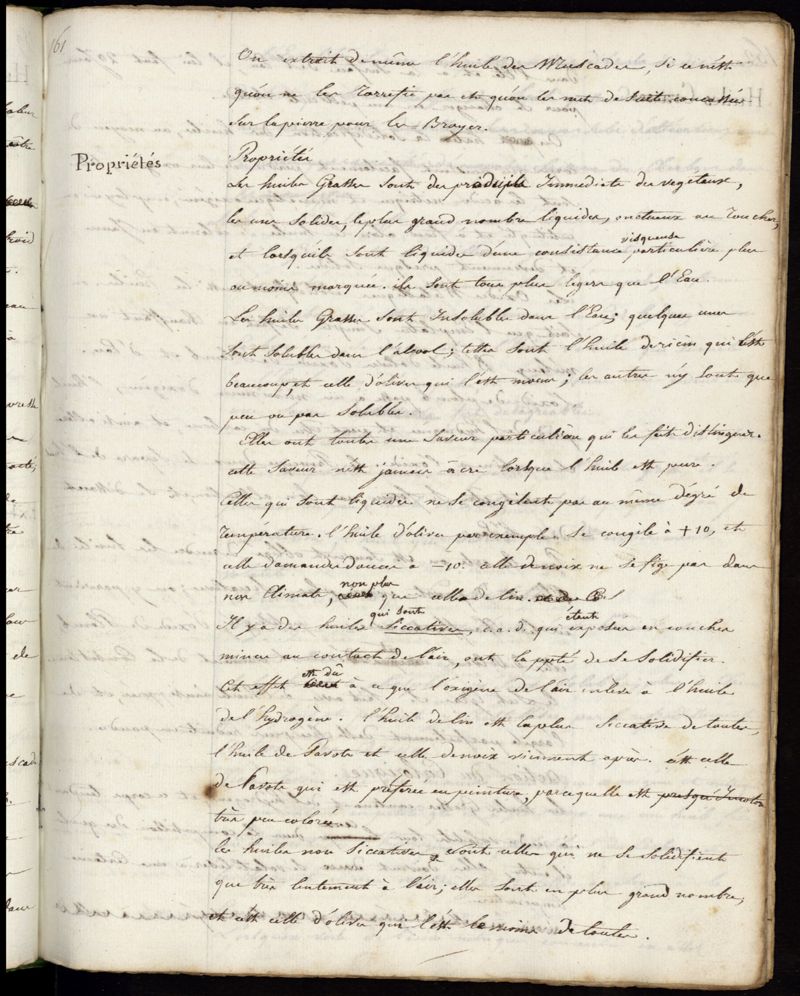 161
On extrait de même l'huile des Muscades, si ce n'est
qu'on ne les Torrefie pas et qu'on les met de suite concassées
sur la pierre pour les Broyer.
Propriétés
Propriétés
Les huiles Grasses sont des produits Immédiats des vegetaux,
les unes solides, le plus grand nombre liquides, onctueux au Toucher,
et lorsqu'ils sont liquides d'une consistance visqueuse particulière plus
ou moins marquée. ils sont tous plus legers que l'Eau.
Les huiles Grasses sont Insolubles dans l'Eau; quelques unes
sont solubles dans l'alcool; telles sont l'huile de ricin qui l'est
beaucoup, et celle d'olives qui l'est moins; les autres n'y sont que
peu ou pas solubles.
Elles ont toutes une saveur particulière qui les fait distinguer.
cette saveur n'est jamais âcre lorsque l'huile est pure.
Celles qui sont liquides ne se congèlent pas au même dégré de
Température. l'huile d'olives par exemple se congèle à +10, et
celle d'amandes douces à -10. celle de noix ne se fige pas dans
nos Climats, non plus que celle de lin.
Il y a des huiles qui sont siccatives, c.a.d. qui étant exposées en couches
minces au contact de l'air, ont la ppté de se solidifier.
Cet effet est dû à ce que l'oxigène de l'air enleve à l'huile
de l'hydrogène. l'huile de lin est la plus siccative de toutes,
l'huile de Pavots et celle de noix viennent après. c'est celle
de Pavots qui est préférée en peinture, parcequ'elle est presqu'Incolore
très peu colorée.
les huiles non siccatives, sont celles qui ne se solidifient
que très lentement à l'air; elles sont en plus grand nombre,
et c'est celle d'olives qui l'est le moins de toutes.